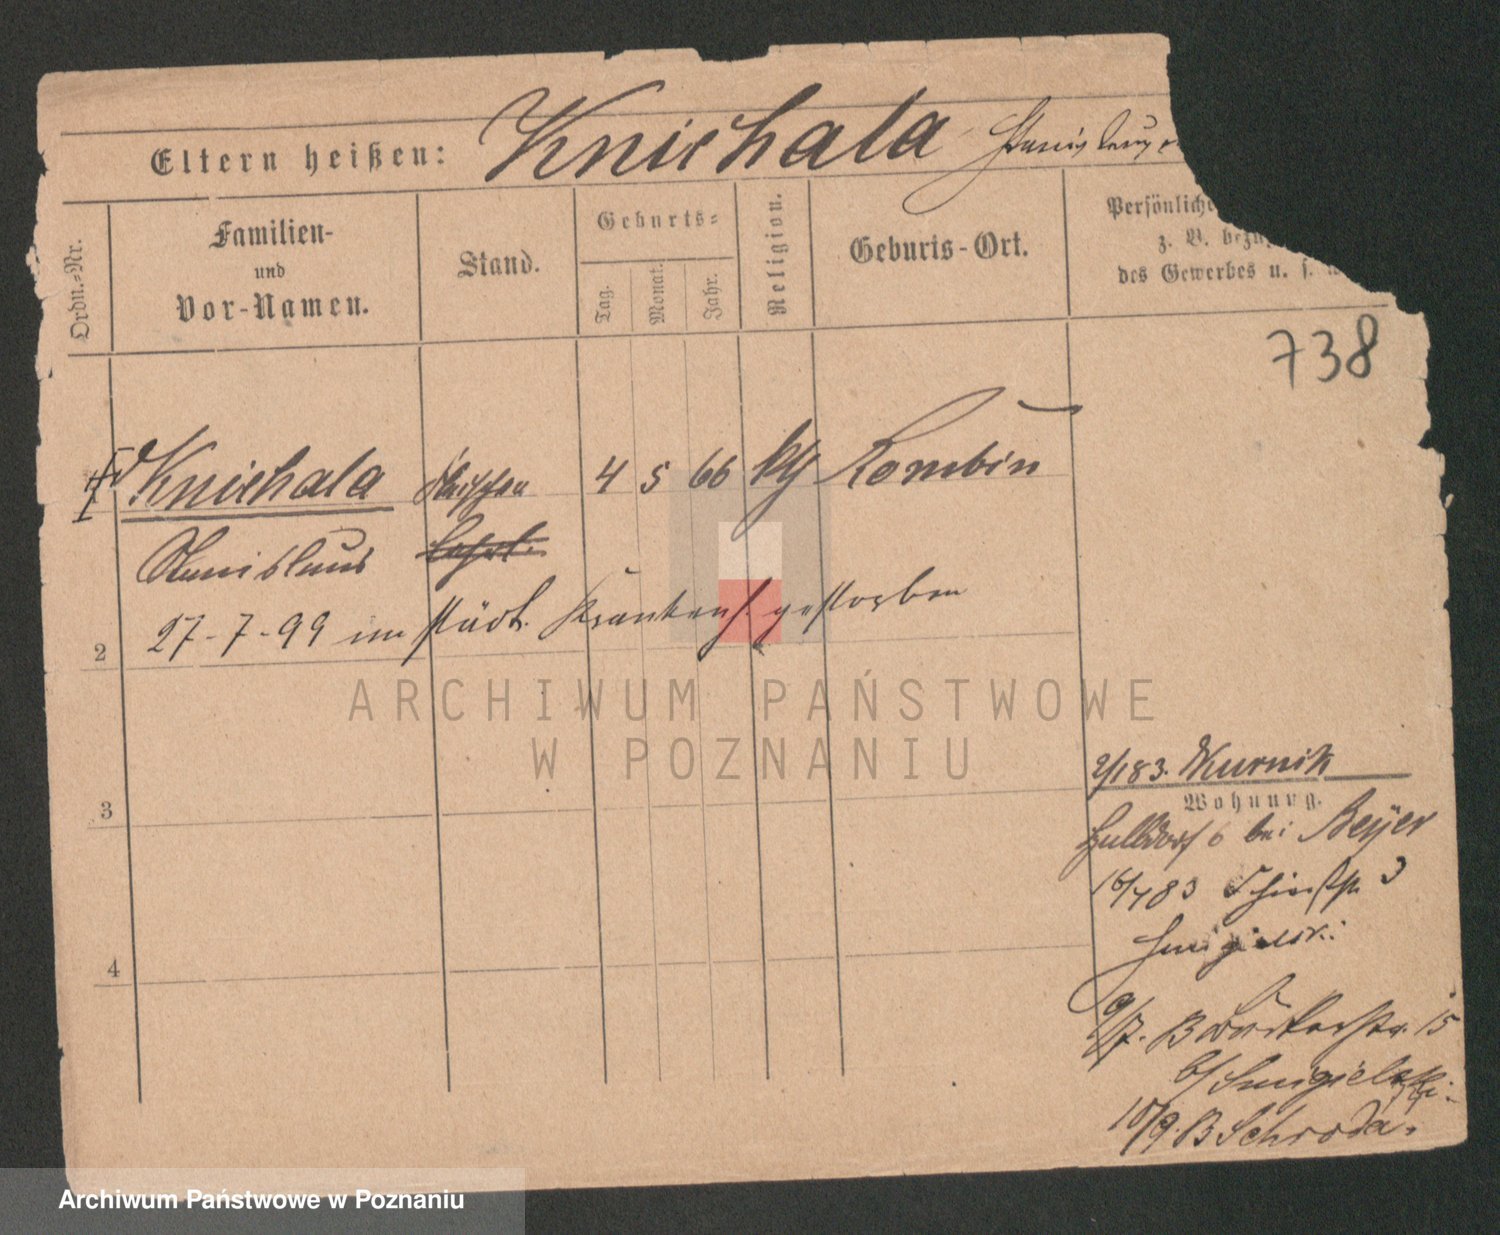 Eltern heißen: Knichala
Ordn.-Nr.
Familien-
und
Vor-Namen.
Stand.
Geburts-
Tag.
Monat.
Jahr.
Religion.
Geburts-Ort.
Persönliche
z. B. bezügl.
des Gewerbes u. s.
738
Knichala 4 5 66 kth Rombin
Stanislaus
27-7-99 im städt. Krankenh. gestorben
2
3
4
2/1 83. Kurnik
Wohnung.
6 bei Beyer
16/4 83 3
Smigielski
9/7. B 15
b/ Smigielski.
10/9. B Schroda.
ARCHIWUM PAŃSTWOWE
W POZNANIU
Archiwum Państwowe w Poznaniu